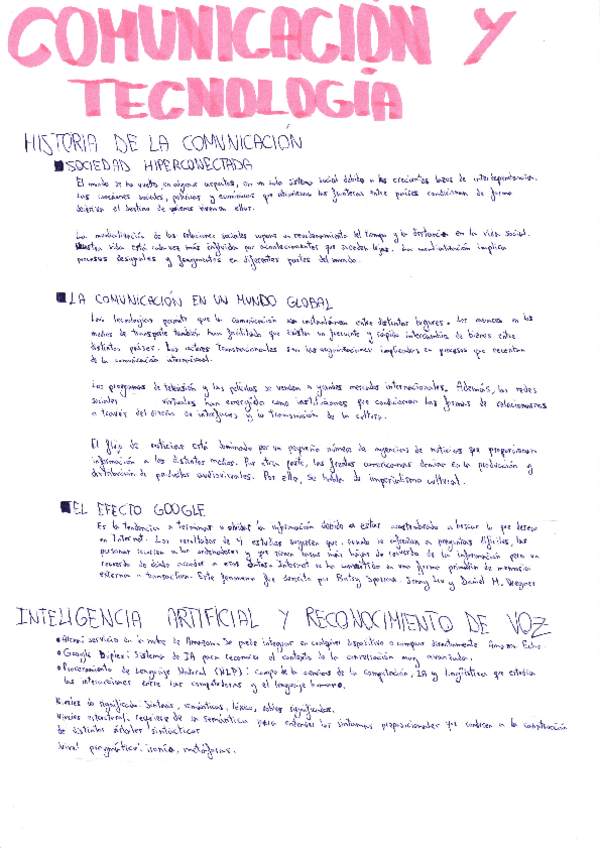 COMUNICACIÓN Y
TECNOLOGÍA
HISTORIA DE LA COMUNICACIÓN
SOCIEDAD HIPERCONECTADA
El mundo se ha vuelto, en algunos aspectos, en un solo sistema social debido a los crecientes lazos de interdependencia.
Las conexiones sociales, políticas y económicas que atraviesan las fronteras entre países condicionan de forma
decisiva el destino de quienes viven en ellos.
La mundialización de las relaciones sociales supone un reordenamiento del tiempo y la distancia en la vida social.
Nuestra vida está cada vez más influida por acontecimientos que suceden lejos. La mundialización implica
procesos desiguales y fragmentos en diferentes partes del mundo.
LA COMUNICACIÓN EN UN MUNDO GLOBAL
Las tecnologías permiten que la comunicación sea instantánea entre distintos lugares. Los avances en los
medios de transporte también han facilitado que exista un frecuente y rápido intercambio de bienes entre
distintos países. Los actores transnacionales son las organizaciones implicadas en procesos que
de la comunicación internacional.
Los programas de televisión y las películas se venden a grandes mercados internacionales. Además, las redes
sociales virtuales han emergido como instituciones que condicionan las formas de relacionarnos
a través del diseño de interfaces y la transmisión de la cultura.
El flujo de noticias está dominado por un pequeño número de agencias de noticias que proporcionan
información a los distintos medios. Por otra parte, las firmas americanas dominan en la producción y
distribución de productos audiovisuales. Por ello, se habla de imperialismo cultural.
EL EFECTO GOOGLE
Es la tendencia a terminar u olvidar la información debido a estar acostumbrado a buscar lo que desea
en Internet. Los resultados de 4 estudios sugieren que, cuando se enfrentan a preguntas difíciles, las
personas recurren a los ordenadores y que tienen tasas más bajas de recuerdo de la información pero un
recuerdo de dónde acceder a esos datos. Internet se ha convertido en una forma primaria de memoria
externa o transactiva. Este fenómeno fue descrito por Betsy Sparrow, Jenny Liu y Daniel M. Wegner
INTELIGENCIA ARTIFICIAL Y RECONOCIMIENTO DE VOZ
servicio en la nube de Amazon. Se puede integrar en cualquier dispositivo o comprar directamente Amazon Echo.
Google Duplex: Sistema de IA para reconocer el contexto de la conversación muy avanzado.
Procesamiento de Lenguaje Natural (NLP): campo de la ciencia de la computación, IA y lingüística que estudia
las interacciones entre las computadoras y el lenguaje humano.
Niveles de significado. Sintaxis, semánticas, léxico, sobre significados.
Niveles estructural. requiere de su semántica para entender los sintagmas proposicionales que conllevan a la construcción
de distintos árboles sintácticos
Nivel pragmático: ironía, metáforas.